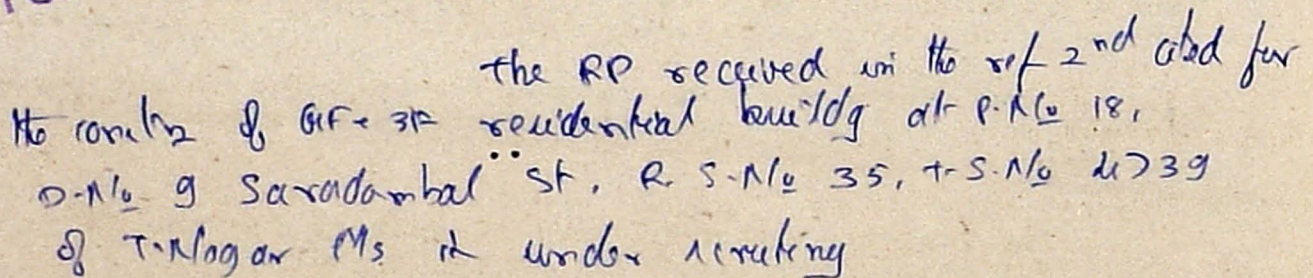 the RP received in the ref 2nd cited for
the constn of GF + 3F residential buildg at P.No 18,
D.No 9 Saradambal St, R.S.No 35, T.S.No 4739
of T.Nagar Ms is under scrutiny